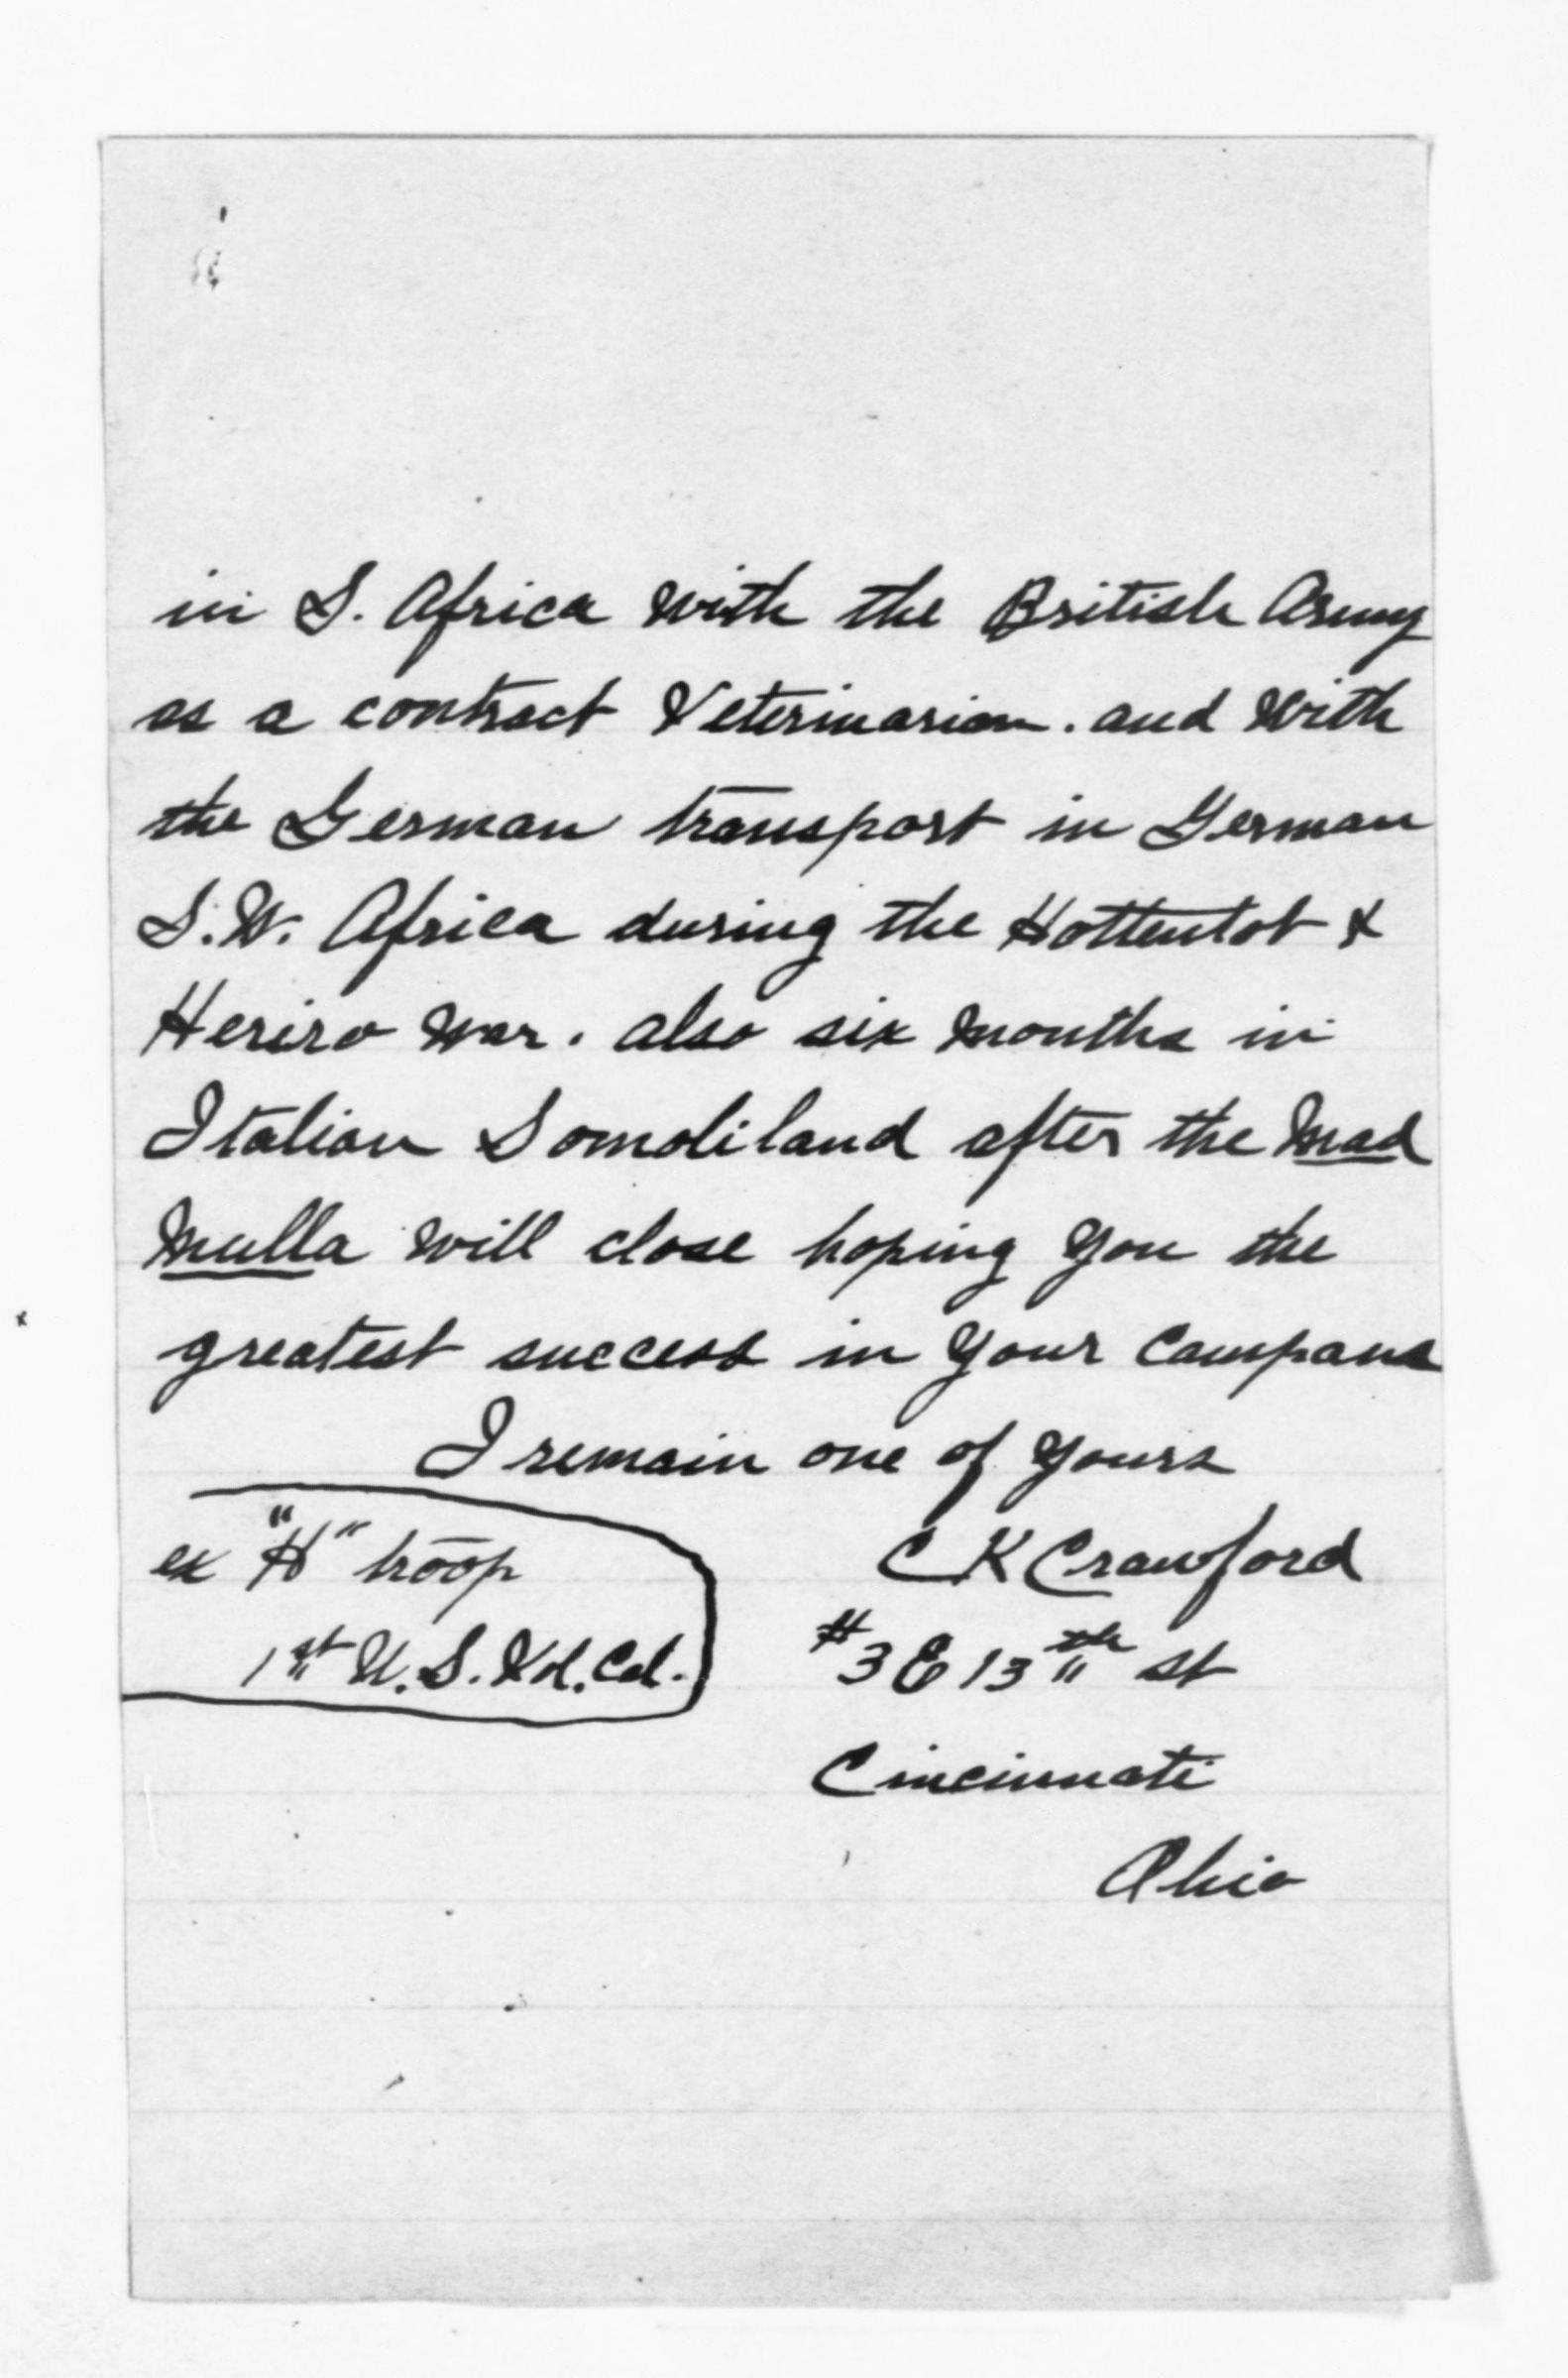 in S. Africa with the British Army
as a contract Veterinarian. and with
the German transport in German
S.W. Africa during the Hottentot &
Heriro war. also six months in
Italian Somoliland after the Mad
Mulla will close hoping you the
greatest success in your Campane
I remain one of yours
C K Crawford
#3 E 13th st
Cincinnati
Ohio
ex "H" troop
1st U.S. Vol. Cal.